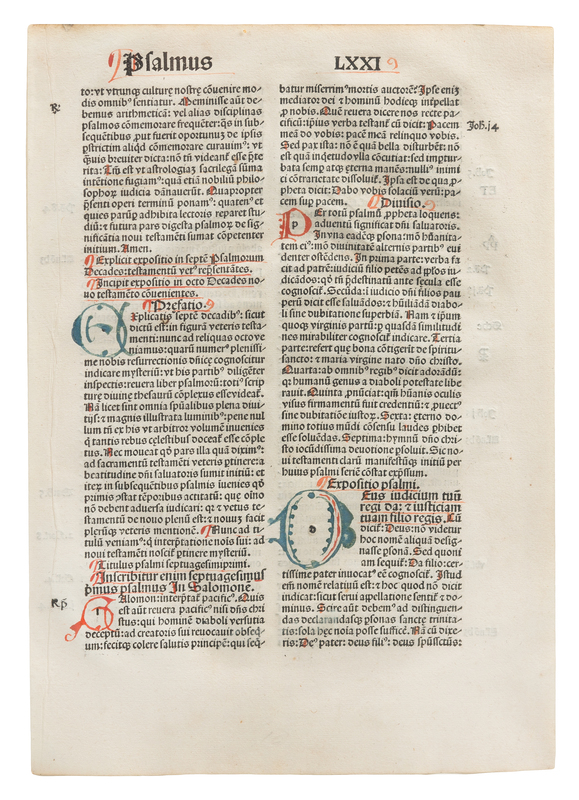 Psalmus LXXI
to: vt vtrunqȝ culturę nostrę cōuenire mo-
dis omnibꝰ sentiatur. Meminisse aūt de-
bemus arithmeticā: vel alias disciplinas
psalmos cōmemorare frequēter: q̄s in sub-
sequētibus prout fuerit oportunuȝ de ipsis
pstrictim aliqd cōmemorare curauimꝰ: vt
breuiter dicta: nō tn̄ videant̄ esse p̄te
rita: Tn̄ est vt astrologiaȝ sacrilegā sūma
intētione fugiamꝰ: quā etiā nobiliū philo-
sophorum iudicia dānauerūt. Quapropter
p̄senti operi terminū ponamꝰ: quatenꝰ et
quies parūp adhibita lectoris reparet stu-
diū: et futura pars digesta psalmorū de sig-
nificātia noui testamēti sumat cōpetenter
initium. Amen.
Explicit expositio in septē Psalmorum
Decades: testamentū vetꝰ repsentātes.
Incipit expositio in octo Decades no-
uo testamēto cōuenientes.
Prefatio.
Explicatis septē decadibꝰ: sicut
dictū est: in figurā veteris testa-
menti: nunc ad reliquas octo ve
niamus: quarū numerꝰ plenissi-
me nobis resurrectionis dn̄icę cognoscitur
indicare mysteriū: vt his partibꝰ diligēter
inspectis: reuera liber psalmorū: totiꝰ scrip
turę diuinę thesaurū cōplexus esse videat̄.
Nā licet sint omnia spūalibus plena diui-
tiis: et magnis illustrata luminibꝰ: pene nul
lum tn̄ ex his vt arbitror volumē inuenies
q̄ tantis rebus cęlestibus doceat̄ esse cōple
tus. Nec moueat qd̄ pars illa quā diximꝰ:
ad sacramentū testamēti veteris ptinere: a
beatitudine dn̄i salutaris sumit initiū: et
iteȝ in subsequētibus psalmis iuenies qd̄
primis ꝯstat tēporibus actitatū: que oīno
nō debent aduersa iudicari: qꝛ et vetus te-
stamentū de nouo plenū est: et nouuȝ facit
plerūqȝ veteris mentionē. Nunc ad ti-
tulū veniamꝰ: qd̄ interp̄tatione nois sui: ad
noui testamēti noscit̄ ptinere mysteriū.
Titulus psalmi septuagesimi primi.
Inscribitur enim septuagesimus
pmus psalmus In Salomonē.
Salomon: interptat̄ pacificꝰ. Quis
est aūt reuera pacificꝰ nisi dn̄s chri
stus: qui hominē diaboli versutia
deceptū: ad creatoris sui reuocauit obseq-
um: fecitqȝ colere salutis principē: qui seq-
batur miserrimꝰ mortis auctorē? Ipse eniȝ
mediator dei et hominū hodieqȝ int̄pellat
p nobis. Quē reuera dicere nos recte pa-
cificū: ipius verba testant̄ cū dicit: Pacem
meā do vobis: pacē meā relinquo vobis.
Sed pax ista: nō ē quā bella disturbēt: nō
est quā inqetudo vlla cōcutiat: sed imptur-
bata semp atqȝ eterna manēs: nulliꝰ inimi
ci cōtrarietate dissoluit̄. Ipsa est de qua p-
pheta dicit: Dabo vobis solaciū verū: pa-
cem sup pacem. Diuisio.
Per totū psalmū ppheta loquens:
aduentū significat dn̄i saluatoris.
In vna eadeqȝ psona: nō hūanita-
tem eiꝰ: nō diuinitatē alternis partibꝰ eui
denter ostēdens. In prima parte: verba fa
cit ad patrē: iudiciū filio petēs ad ipsos in-
dicādos: qd̄ tn̄ pdestinatū ante sęcula esse
cognoscit̄. Secūda: iudicio dn̄i filios pau
perū dicit esse saluādos: et hūiliādū diabo-
li sine dubitatione superbiā. Nam et ipium
quoqȝ virginis partū: p quasdā similitudi
nes mirabiliter cognoscit̄ indicare. Tertia
parte: refert que bona cōtigerit de spiritu-
sancto: et maria virgine nato dn̄o christo.
Quarta: ab omnibꝰ regibꝰ dicit adorādū:
qꝛ humanū genus a diaboli potestate libe
rauit. Quinta pnūciat: qd̄ hūanis oculis
visus firmamentū fuit credentiū: et puectꝰ
sine dubitatiōe iustorꝝ. Sexta: eterno do-
mino totius mūdi cōsensu laudes phibet
esse soluēdas. Septima: hymnū dn̄o chri-
sto iocūdissima deuotione psoluit. Sic no-
ui testamenti clarū manifestūqȝ initiū per
bunus psalmi seriē cōstat expssum.
Expositio psalmi.
Deus iudicium tuū
regi da: et iusticiam
tuam filio regis. Cū
dicit: Deus: nō videtur
hoc nomē aliquā desig-
nasse psonā. Sed quoni
am sequit̄: Da filio: cer-
tissime pater inuocatꝰ eē cognoscit̄. Istud
eim nomē relatiuū est: et hoc quod nō dicit
indicat: sicut serui appellatione sentit̄ et do-
minus. Scire aūt debemꝰ ad distinguen-
das declarandasqȝ psonas sanctę trinita-
tis: sola hęc noīa posse sufficē. Nā cū dixe-
ris: Deꝰ pater: deus filiꝰ: deus spūssctūs:
Joh. 14